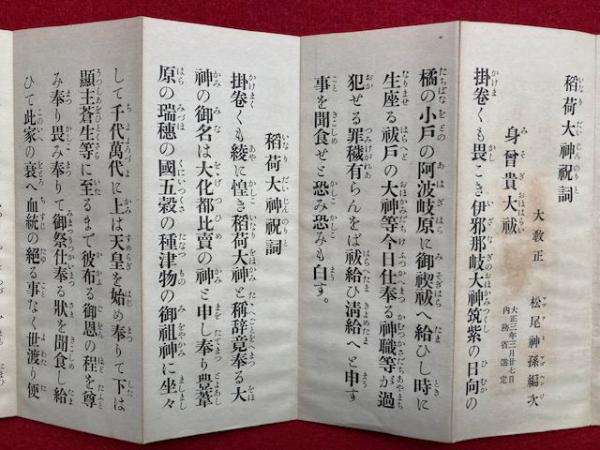 稲荷大神祝詞
大教正 松尾神孫編次
身曾貴大祓
大正三年三月廿七日
内務省選定
掛卷くも畏こき伊邪那岐大神筑紫の日向の
橘の小戸の阿波岐原に御禊祓へ給ひし時に
生座る祓戸の大神等今日仕奉る神職等が過
犯せる罪穢有らんをば祓給ひ淸給へと申す
事を聞食せと恐み恐みも白す。
稲荷大神祝詞
掛卷くも綾に惶き稲荷大神と稱辞竟奉る大
神の御名は大化都比賣の神と申し奉り豊葦
原の瑞穗の國五穀の種津物の御祖神に坐々
して千代萬代に上は天皇を始め奉りて下は
顯主蒼生等に至るまで彼布る御恩の程を尊
み奉り畏み奉りて御祭仕奉る狀を聞食し給
ひて此家の衰へ血統の絕る事なく世渡り便